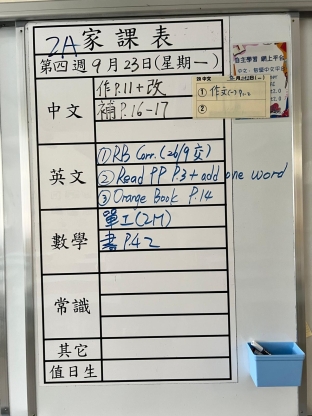 2A 家課表
第四週 9月23日(星期一)
中文
作P.11+改
補P.16-17
① 作文(一)
②
自主學習 網上平台
英文
① RB Corr. (26/9交)
② Read PP P.3 + add one word
③ Orange Book P.14
數學
單工(2M)
書P.42
常識
其它
值日生